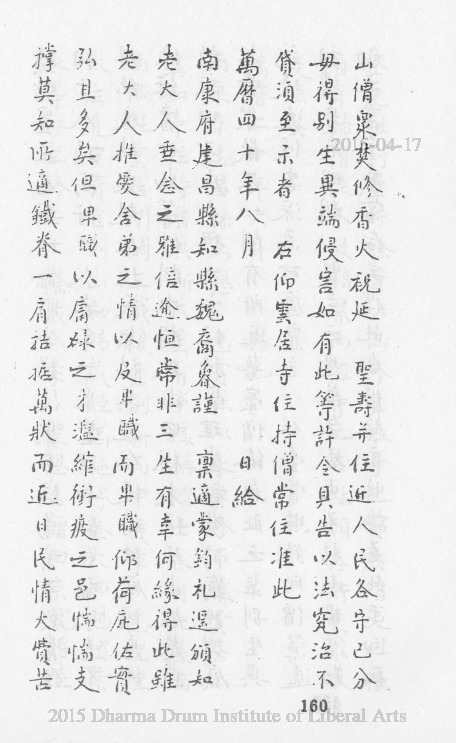 山僧眾焚修香火祝延　聖壽并住近人民各守己分
毋得別生異端侵害如有此等許令具告以法究治不
貸須至示者　右仰雲居寺住持僧常住准此
萬曆四十年八月　　　　　日給
南康府建昌縣知縣魏裔謹　稟適蒙鈞札遝頒知
老大人垂念之雅倍逾恒常非三生有幸何緣得此雖
老大人推愛舍弟之情以及卑職而卑職仰荷庇佑實
弘且多矣但卑職以庸碌之才濫維衝疲之邑惴惴支
撐莫知所適鐵脊一肩拮据萬狀而近日民情大費苦
160
2015-04-17
2015 Dharma Drum Institute of Liberal Arts